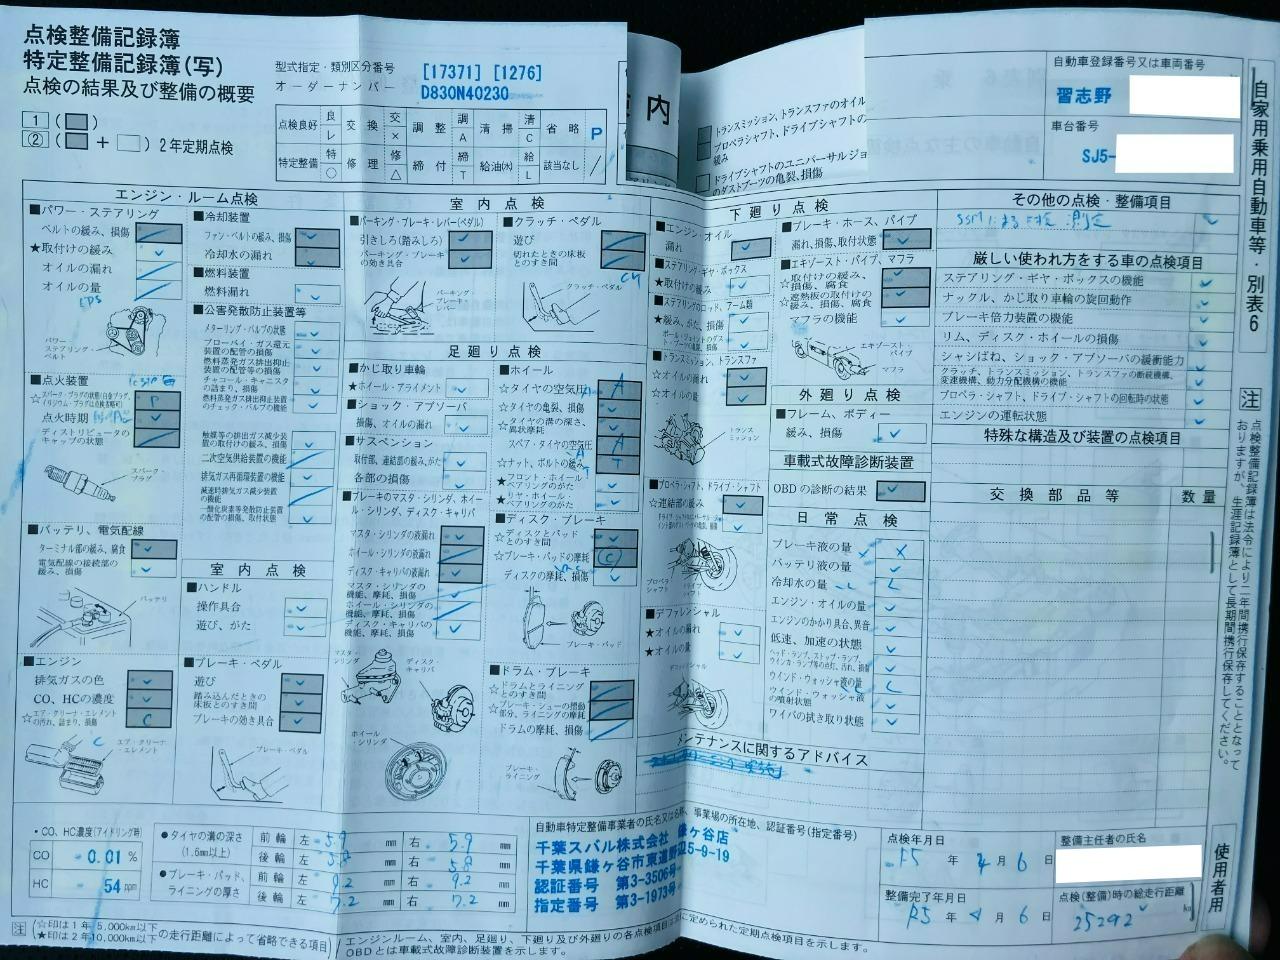 点検整備記録簿
特定整備記録簿(写)
点検の結果及び整備の概要
型式指定・類別区分番号 [17371] [1276]
オーダーナンバー D830N40230
1 ( )
② ( + ) 2年定期点検
点検良好 レ 交換 × 調整 A 清掃 C 省略 P
特定整備 ○ 修理 △ 締付 T 給油(水) L 該当なし /
自動車登録番号又は車両番号
習志野
車台番号
SJ5-
自家用乗用自動車等・別表6
トランスミッション、トランスファのオイル
プロペラシャフト、ドライブシャフトの
緩み
ドライブシャフトのユニバーサルジョ
のダストブーツの亀裂、損傷
エンジン・ルーム点検
■パワー・ステアリング
ベルトの緩み、損傷
★取付けの緩み
オイルの漏れ
オイルの量
EPS
パワー・ステアリング・ベルト
■点火装置
☆スパーク・プラグの状態(白金プラグ、イリジウム・プラグは点検省略可)
P
点火時期
ディストリビュータのキャップの状態
スパーク・プラグ
■バッテリ、電気配線
ターミナル部の緩み、腐食
電気配線の接続部の緩み、損傷
バッテリ
■エンジン
排気ガスの色
CO、HCの濃度
☆エア・クリーナ・エレメントの汚れ、詰まり、損傷
C
エア・クリーナ・エレメント
■冷却装置
ファン・ベルトの緩み、損傷
冷却水の漏れ
■燃料装置
燃料漏れ
■公害発散防止装置等
メターリング・バルブの状態
ブローバイ・ガス還元装置の配管の損傷
燃料蒸発ガス排出抑止装置の配管等の損傷
チャコール・キャニスタの詰まり、損傷
燃料蒸発ガス排出抑止装置のチェック・バルブの機能
触媒等の排出ガス減少装置の取付けの緩み、損傷
二次空気供給装置の機能
排気ガス再循環装置の機能
減速時排気ガス減少装置の機能
一酸化炭素等発散防止装置の配管の損傷、取付状態
室内点検
■ハンドル
操作具合
遊び、がた
■ブレーキ・ペダル
遊び
踏み込んだときの床板とのすき間
ブレーキの効き具合
ブレーキ・ペダル
室内点検
■パーキング・ブレーキ・レバー(ペダル)
引きしろ(踏みしろ)
パーキング・ブレーキの効き具合
パーキング・ブレーキ・レバー
■クラッチ・ペダル
遊び
切れたときの床板とのすき間
クラッチ・ペダル
足廻り点検
■かじ取り車輪
★ホイール・アライメント
■ショック・アブソーバ
損傷、オイルの漏れ
■サスペンション
取付部、連結部の緩み、がた
各部の損傷
■ブレーキのマスタ・シリンダ、ホイール・シリンダ、ディスク・キャリパ
マスタ・シリンダの液漏れ
ホイール・シリンダの液漏れ
ディスク・キャリパの液漏れ
マスタ・シリンダの機能、摩耗、損傷
ホイール・シリンダの機能、摩耗、損傷
ディスク・キャリパの機能、摩耗、損傷
マスタ・シリンダ
ディスク・キャリパ
ホイール・シリンダ
■ホイール
☆タイヤの空気圧 A
☆タイヤの亀裂、損傷
☆タイヤの溝の深さ、異状摩耗
スペア・タイヤの空気圧 A
☆ナット、ボルトの緩み T
★フロント・ホイール・ベアリングのがた
★リヤ・ホイール・ベアリングのがた
■ディスク・ブレーキ
☆ディスクとパッドとのすき間
☆ブレーキ・パッドの摩耗 C
ディスクの摩耗、損傷
ブレーキ・パッド
■ドラム・ブレーキ
☆ドラムとライニングとのすき間
☆ブレーキ・シューの摺動部分、ライニングの摩耗
ドラムの摩耗、損傷
ブレーキ・ライニング
下廻り点検
■エンジン・オイル
漏れ
■ステアリング・ギヤ・ボックス
★取付けの緩み
■ステアリングのロッド、アーム類
★緩み、がた、損傷
ボール・ジョイントのダスト・ブーツの亀裂、損傷
■トランスミッション、トランスファ
☆オイルの漏れ
☆オイルの量
トランスミッション
■プロペラ・シャフト、ドライブ・シャフト
☆連結部の緩み
プロペラ・シャフト
ドライブ・シャフト
■デファレンシャル
★オイルの漏れ
★オイルの量
デファレンシャル
■ブレーキ・ホース、パイプ
漏れ、損傷、取付状態
■エキゾースト・パイプ、マフラ
☆取付けの緩み、損傷、腐食
☆遮熱板の取付けの緩み、損傷、腐食
マフラの機能
エキゾースト・パイプ
マフラ
外廻り点検
■フレーム、ボディー
緩み、損傷
車載式故障診断装置
OBDの診断の結果
日常点検
ブレーキ液の量 ×
バッテリ液の量
冷却水の量 L
エンジン・オイルの量
エンジンのかかり具合、異音
低速、加速の状態
ヘッド・ランプ、ストップ・ランプ、ウインカ・ランプ等の点灯、汚れ、損傷
ウインド・ウォッシャ液の量 L
ウインド・ウォッシャ液の噴射状態
ワイパの拭き取り状態
メンテナンスに関するアドバイス
その他の点検・整備項目
SSMによる点検 測定
厳しい使われ方をする車の点検項目
ステアリング・ギヤ・ボックスの機能
ナックル、かじ取り車輪の旋回動作
ブレーキ倍力装置の機能
リム、ディスク・ホイールの損傷
シャシばね、ショック・アブソーバの緩衝能力
クラッチ、トランスミッション、トランスファの断続機構、変速機構、動力分配機構の機能
プロペラ・シャフト、ドライブ・シャフトの回転時の状態
エンジンの運転状態
特殊な構造及び装置の点検項目
交換部品等 数量
注 点検整備記録簿は法令により二年間携行保存することとなっておりますが、生涯記録簿として長期間携行保存してください。
使用者用
・CO、HC濃度(アイドリング時)
CO 0.01 %
HC 54 ppm
●タイヤの溝の深さ(1.6mm以上)
前輪 左 5.9 mm 右 5.9 mm
後輪 左 5.8 mm 右 5.8 mm
●ブレーキ・パッド、ライニングの厚さ
前輪 左 9.2 mm 右 9.2 mm
後輪 左 7.2 mm 右 7.2 mm
自動車特定整備事業者の氏名又は名称、事業場の所在地、認証番号(指定番号)
千葉スバル株式会社 鎌ヶ谷店
千葉県鎌ヶ谷市東道野辺5-9-19
認証番号 第3-3506号
指定番号 第3-1973号
点検年月日
R5年 4月 6日
整備主任者の氏名
整備完了年月日
R5年 4月 6日
点検(整備)時の総走行距離
25292 km
注 (☆印は1年5,000km以下 ★印は2年10,000km以下の走行距離によって省略できる項目)
エンジンルーム、室内、足廻り、下廻り及び外廻りの各点検項目は法に定められた定期点検項目を示します。
OBDとは車載式故障診断装置を示します。